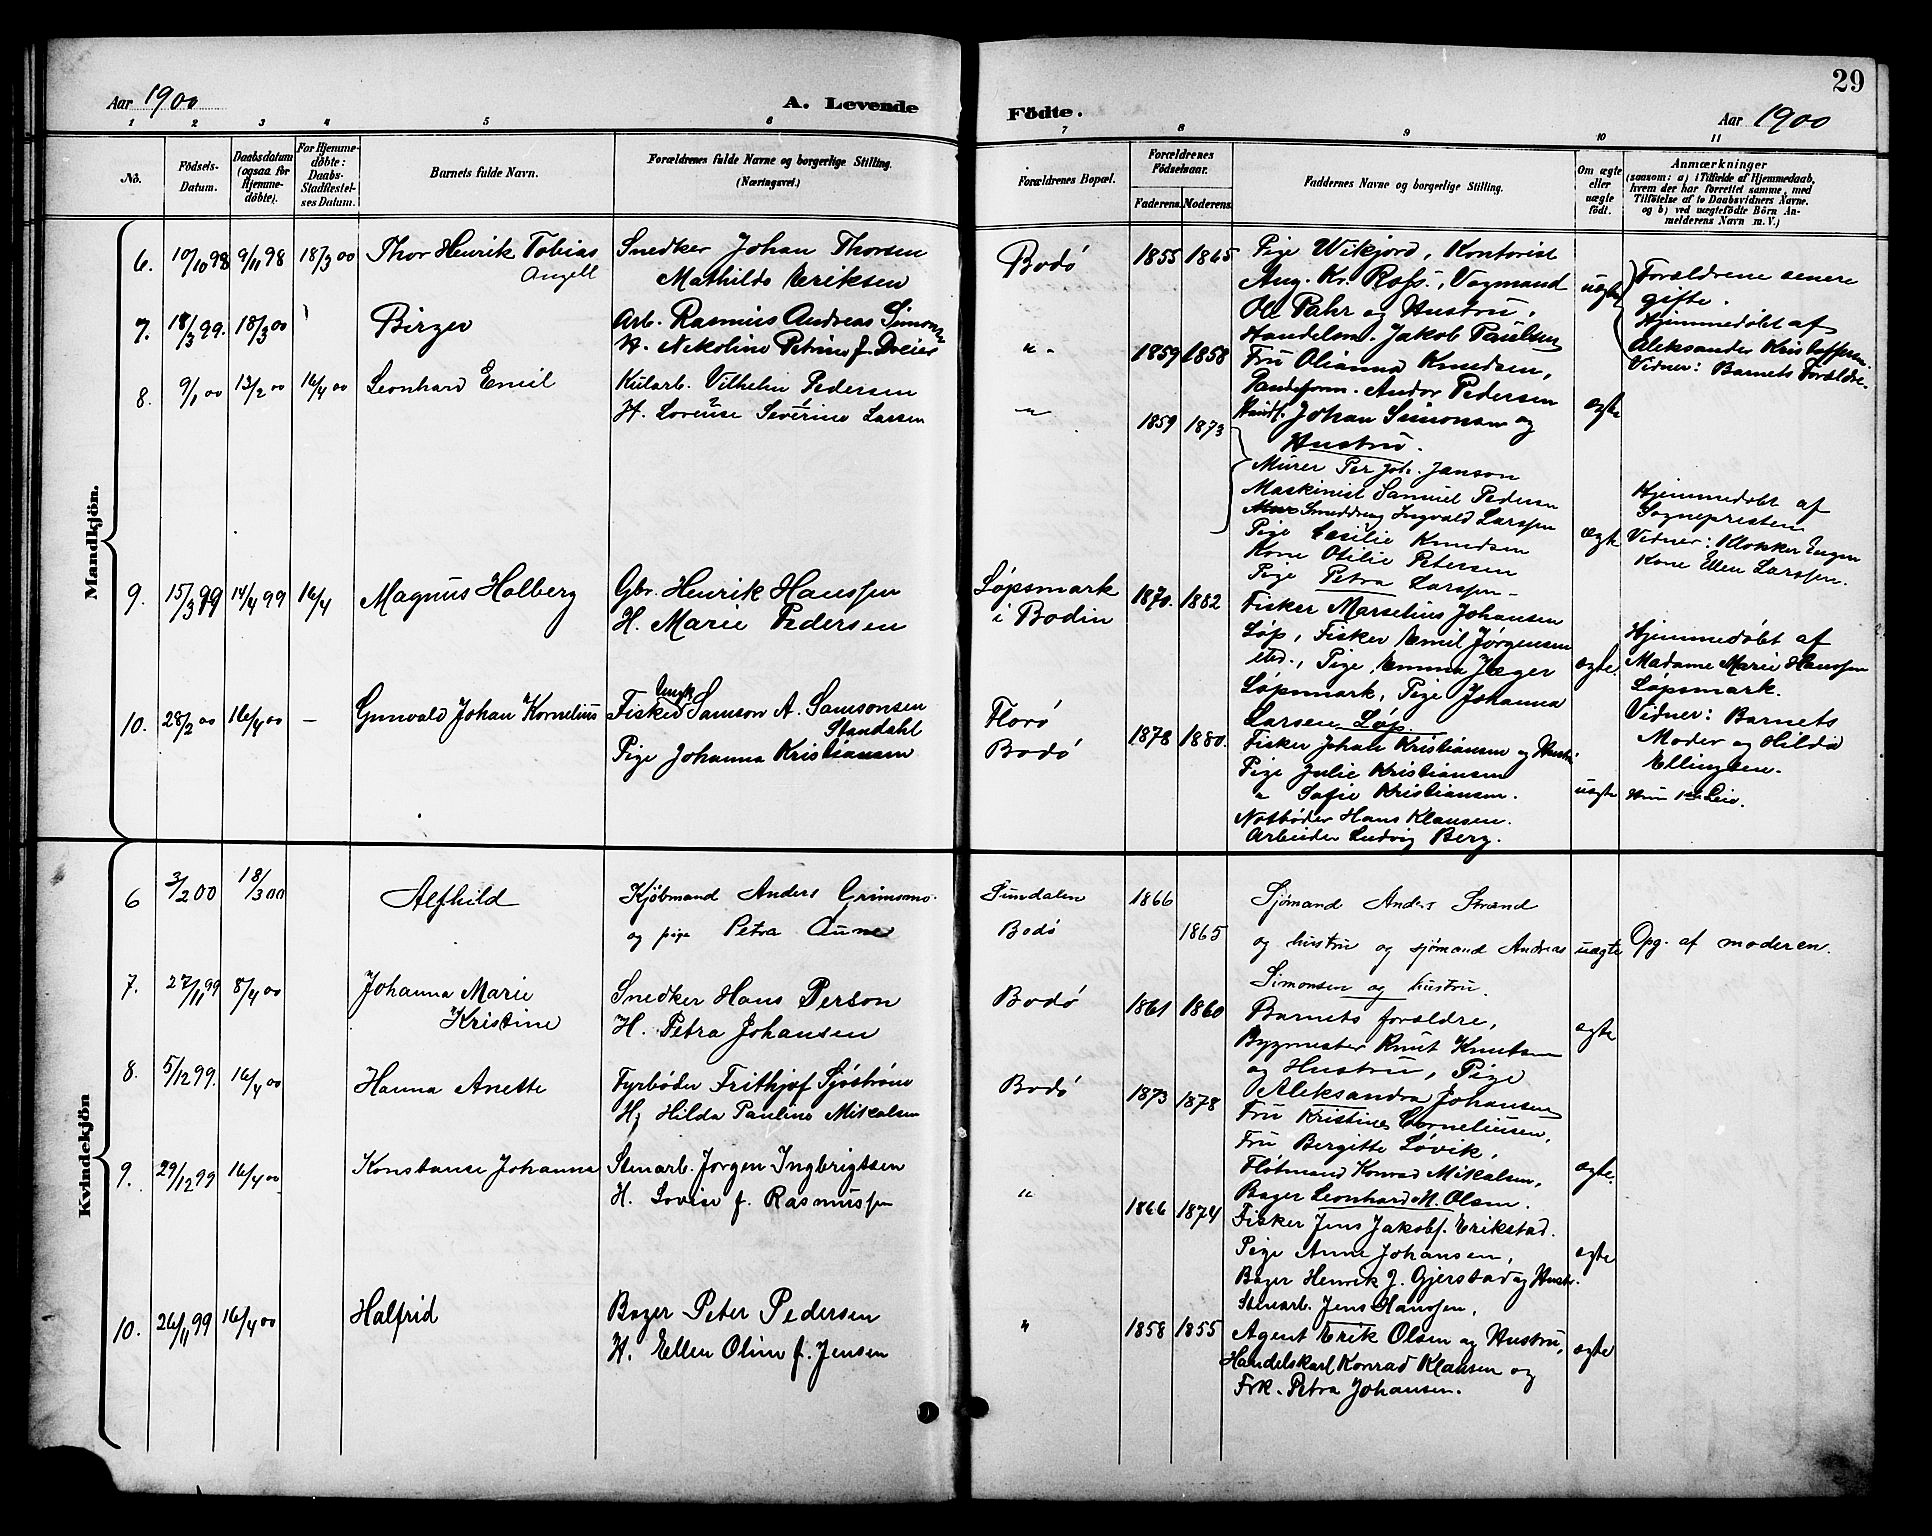 29
Aar 1900
A. Levende
Födte.
Aar 1900
1 2 3 4 5 6 7 8 9 10 11
No.
Födsels-Datum.
Daabsdatum (ogsaa for Hjemmedöbte).
For Hjemmedöbte: Daabs-Stadfæstelses Datum.
Barnets fulde Navn.
Forældrenes fulde Navne og borgerlige Stilling.
(Næringsvei.)
Forældrenes Bopæl.
Forældrenes Födselsaar.
Faderens. Moderens.
Faddernes Navne og borgerlige Stilling.
Om ægte eller uægte födt.
Anmærkninger
(saasom: a) i Tilfælde af Hjemmedaab, hvem der har forrettet samme, med Tilföielse af to Daabsvidners Navne. og b) ved uægtefödte Börn Anmelderens Navn m. V.)
Mandkjön.
6. 10/10 98 9/11 98 18/3 00 Thor Henrik Tobias
Angell
Snedker Johan Thorsen
Mathilde Eriksen
Bodø 1855 1865
Pige Wikjord, Kontorist
Aug. Kr. Rofs., Vogmand
Ol. Pahr og Hustru,
Handelsm. Jakob Paulsen
uægte
Forældrene senere
gifte.
Hjemmedøbt af
Aleksander Kristoffersen.
Vidner: Barnets Forældre.
7. 18/3 99. 18/3 00 Birger
Arb. Rasmus Andreas Simons
H. Nikoline Petrine f. Dreier
" - 1859 1858
Fru Olianna Knudsen,
Andor Pedersen
Johan Simonsen og
Hustru.
ægte
8. 9/1 00 13/2 00 16/4 00 Leonhard Emil
Kularb. Vilhelm Pedersen
H. Lovense Severine Larsen
" 1859 1873
Murer Per Joh. Janson
Maskinist Samuel Pedersen
Smeddreng Ingvald Larssen
Pige Cecilie Knudsen
Kone Otilie Petersen
Pige Petra Larssen
ægte
Hjemmedøbt af
Sognepresten
Vidner: Klokker Engen
Kone Ellen Larssen.
9. 15/3 99 14/4 99 16/4 Magnus Holberg
Gbr. Henrik Hanssen
H. Marie Pedersen
Løpsmark
i Bodin
1870. 1882
Fisker Marselius Johansen
Løp, Fisker Emil Jørgensen
sted., Pige Emma Jæger
Løpsmark, Pige Johanna
Larsen Løp.
ægte.
Hjemmedøbt af
Madame Marie Hanssen
Løpsmark.
Vidner: Barnets
Moder og Hilda
Ellingsen.
10. 28/2 00 16/4 00 - Gunvald Johan Kornelius
Ungk
Fisker Samson A. Samsonsen
Standahl
Pige Johanna Kristiansen
Florø
Bodø
1878 1880.
Fisker Johan Kristiansen og Hustru
Pige Julie Kristiansen
" Sofie Kristiansen.
Notbøder Hans Klausen.
Arbeider Ludvig Berg.
uægte
Kvindekjön
6 3/2 00 18/3 00 Alfhild
Kjøbmand Anders Grimsmo.
og pige Petra Aune
Sundalen
Bodø
1866
1865
Sjømand Anders Strand
og hustru og sjømand Andreas
Simonsen og hustru.
uægte
Opg. af moderen.
7. 27/11 99 8/4 00 Johanna Marie
Kristine
Snedker Hans Person
H. Petra Johansen
Bodø
1861 1860
Barnets forældre,
Bygmester Knut Knutsen
og Hustru, Pige
Aleksandra Johansen
ægte
8. 5/12 99. 16/4 00 Hanna Anette
Fyrbøder Frithjof Sjøstrøm
H. Hilda Pauline Mikalsen
Bodø
1873 1878
Fru Kristine Corneliusen,
Fru Bergitte Løvik,
Fløtmand Konrad Mikalsen,
Bager Leonhard M. Olsen.
ægte.
9. 29/12 99 16/4 00 Konstanse Johanna
Stenarb. Jørgen Ingbrigtsen
H. Lovise f. Rasmussen
"
1866 1874
Fisker Jens Jakobs. Erikstad.
Pige Anne Johansen,
Bager Henrik J. Gjerstad og Hustr.
Stenarb. Jens Hanssen,
ægte
10. 26/11 99 16/4 00 Halfrid
Bager Peter Pedersen
H. Ellen Oline f. Jensen
"
1858 1855
Agent Erik Olsen og Hustru,
Handelskarl Konrad Klausen og
Frk. Petra Johansen.
ægte